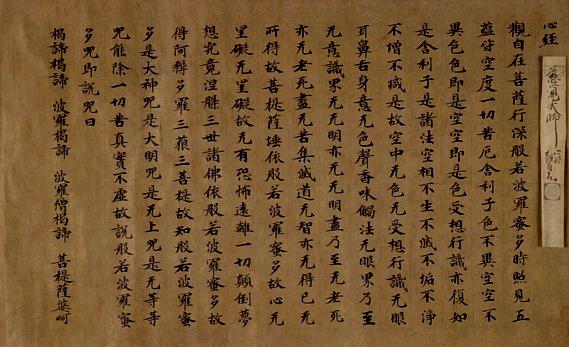 心経
慈覚大師
觀自在菩薩行深般若波羅蜜多時照見五
蘊皆空度一切苦厄舍利子色不異空空不
異色色即是空空即是色受想行識亦復如
是舍利子是諸法空相不生不滅不垢不淨
不增不減是故空中无色无受想行識无眼
耳鼻舌身意无色聲香味觸法无眼界乃至
无意識界无无明亦无无明盡乃至无老死
亦无老死盡无苦集滅道无智亦无得已无
所得故菩提薩埵依般若波羅蜜多故心无
罣礙无罣礙故无有恐怖遠離一切顛倒夢
想究竟涅槃三世諸佛依般若波羅蜜多故
得阿耨多羅三藐三菩提故知般若波羅蜜
多是大神咒是大明咒是无上咒是无等等
咒能除一切苦真實不虛故說般若波羅蜜
多咒即說咒曰
揭諦揭諦 波羅揭諦 波羅僧揭諦 菩提薩婆呵